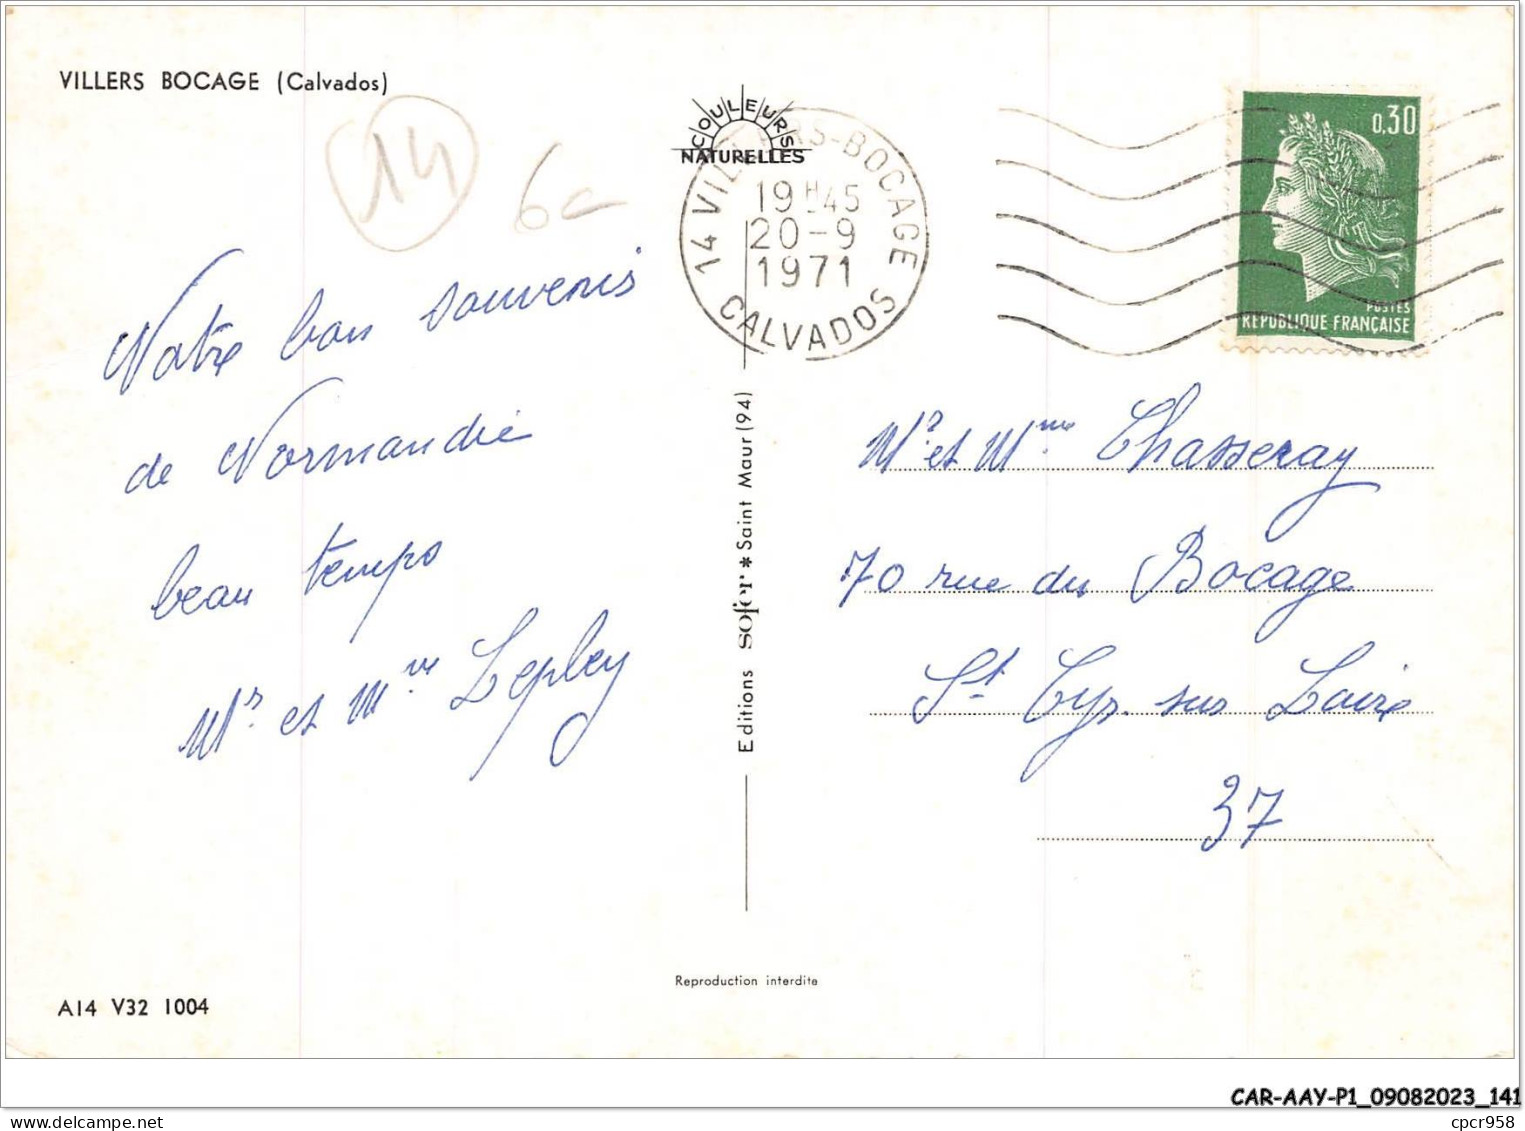 VILLERS BOCAGE (Calvados)
14
6€
Notre bon souvenir
de Normandie
beau temps
Mr. et Mme Lepley
A14 V32 1004
COULEURS
NATURELLES
14 VILLERS-BOCAGE
19H45
20-9
1971
CALVADOS
Editions sofer * Saint Maur (94)
Reproduction interdite
0,30
POSTES
REPUBLIQUE FRANÇAISE
Mr et Mme Chasseray
70 rue du Bocage
St Cyr. sur Loire
37
CAR-AAY-P1_09082023_141
cpcr958